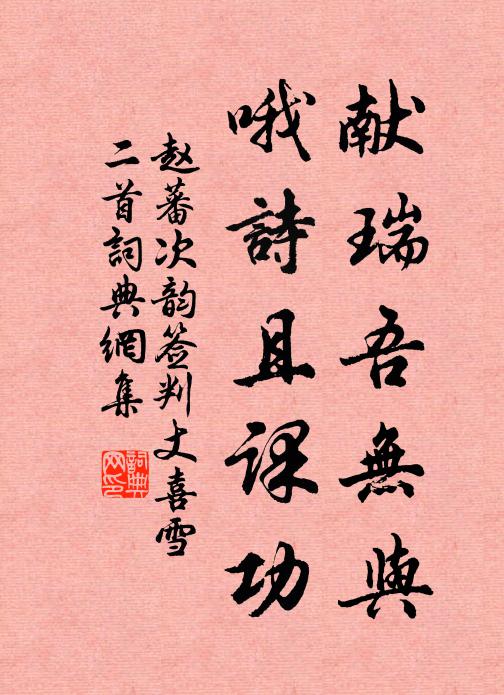 献瑞吾無與
哦詩且課功
赵蕃次韵签判丈喜雪
二首詞典網集
詞典
网印